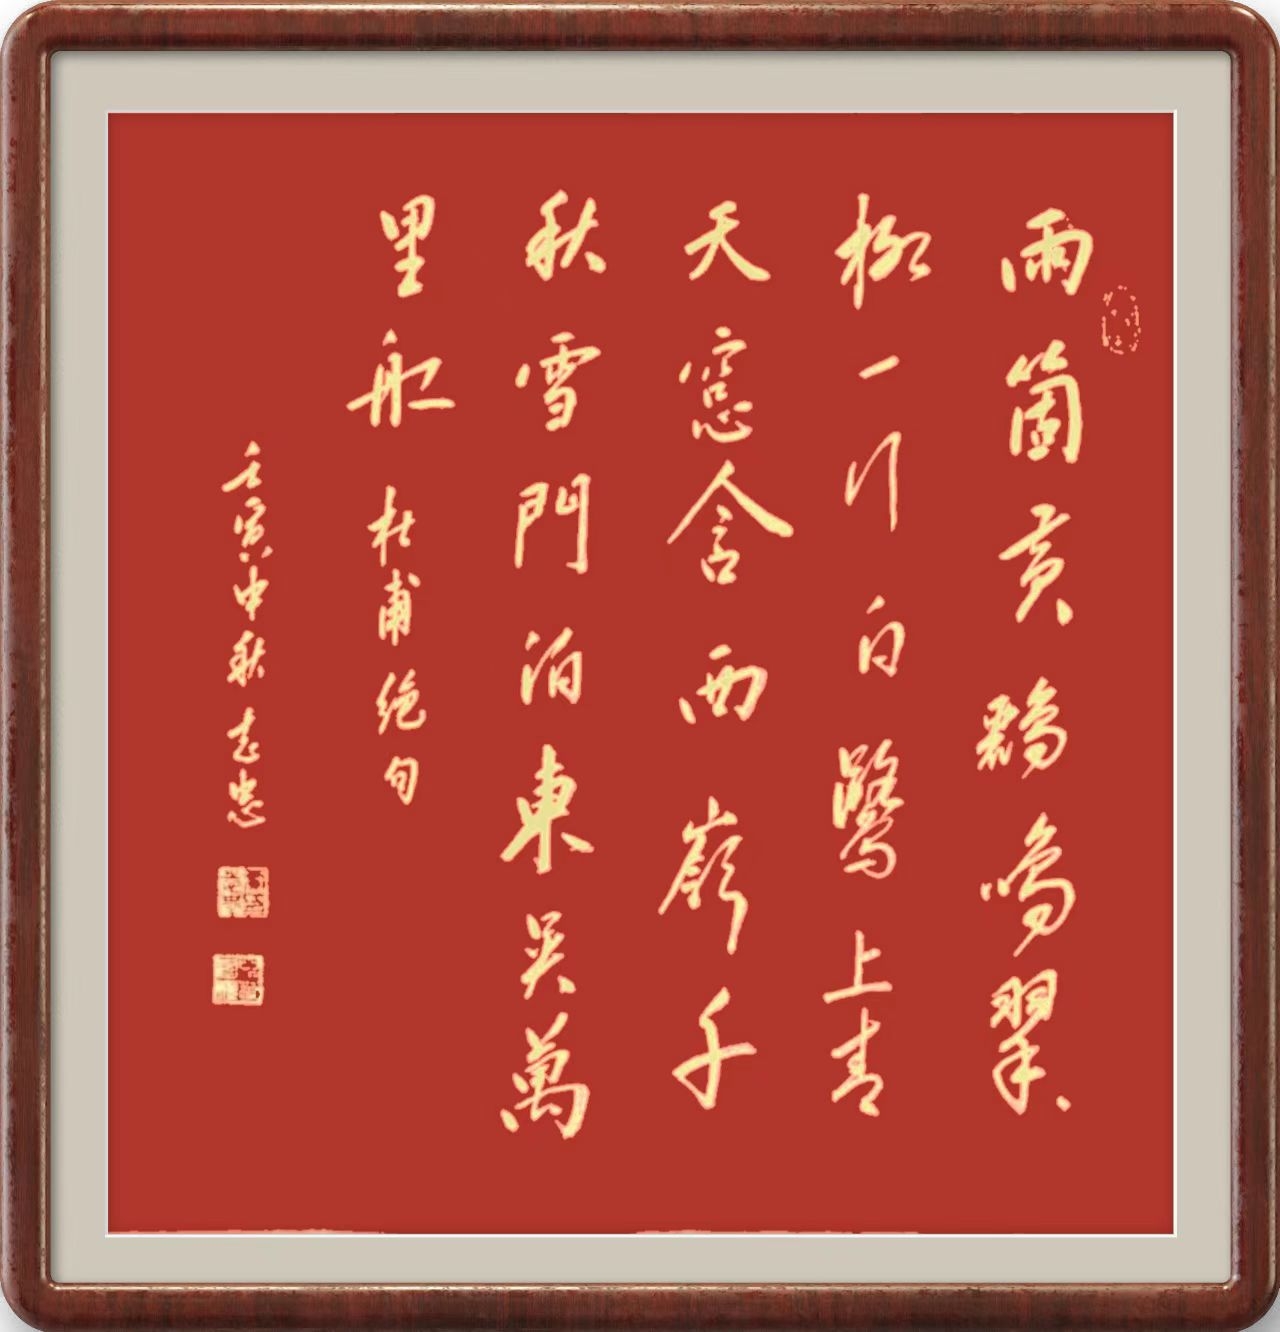 兩箇黃鸝鳴翠
柳一行白鷺上青
天窓含西嶺千
秋雪門泊東吳萬
里船 杜甫绝句
壬寅中秋 志忠